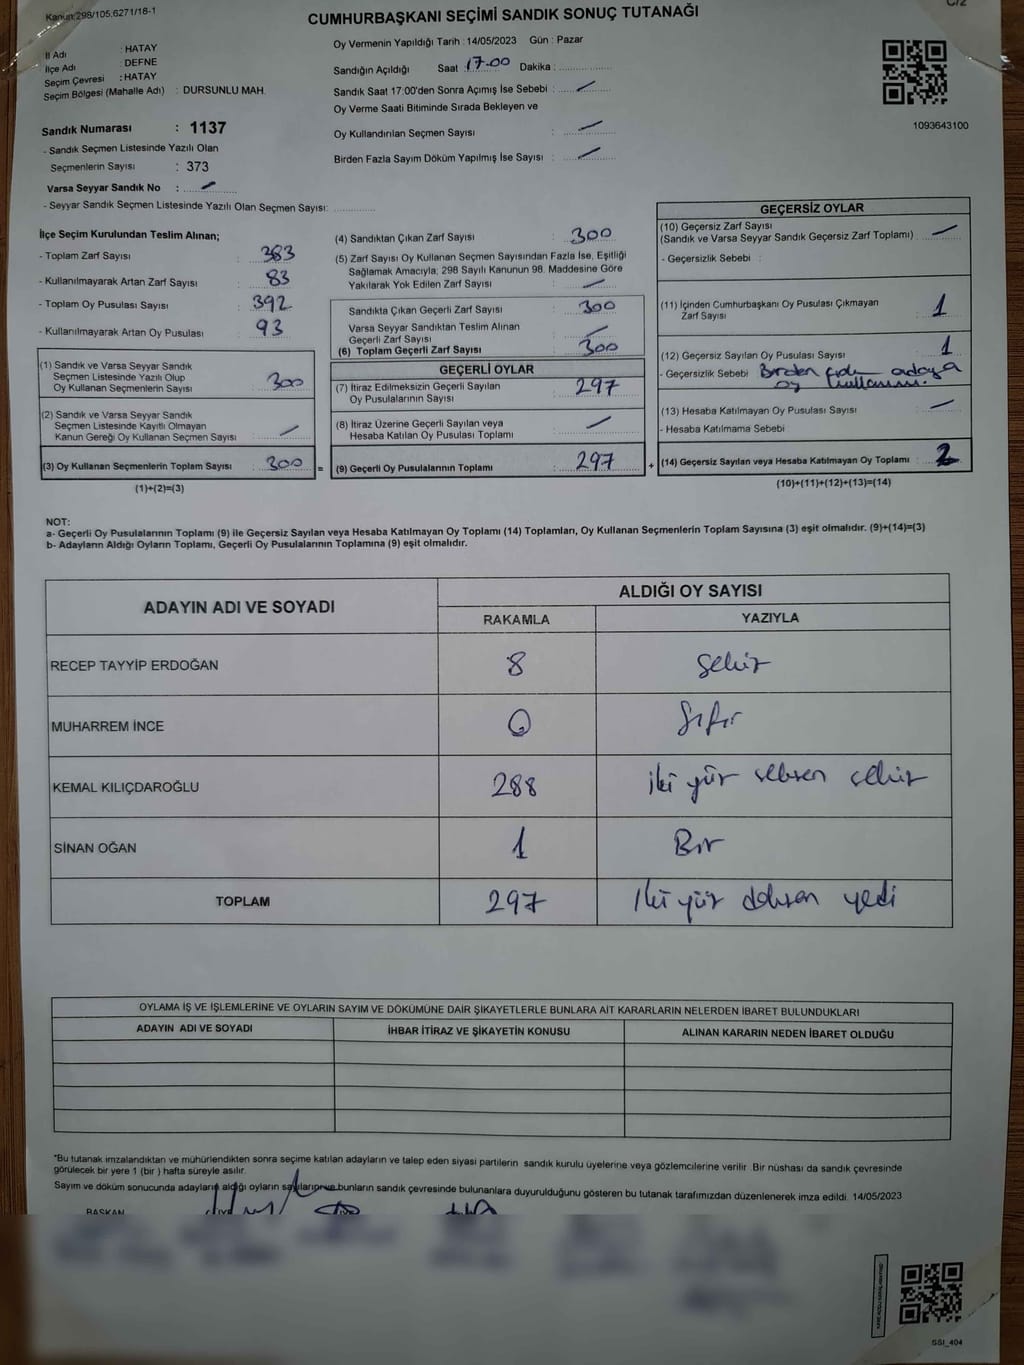 Kanun:298/105,6271/18-1
C/2
CUMHURBAŞKANI SEÇİMİ SANDIK SONUÇ TUTANAĞI
İl Adı : HATAY
İlçe Adı : DEFNE
Seçim Çevresi : HATAY
Seçim Bölgesi (Mahalle Adı) : DURSUNLU MAH.
Oy Vermenin Yapıldığı Tarih : 14/05/2023 Gün : Pazar
Sandığın Açıldığı Saat 17.00 Dakika :
Sandık Saat 17:00'den Sonra Açımış İse Sebebi : –
Oy Verme Saati Bitiminde Sırada Bekleyen ve
Oy Kullandırılan Seçmen Sayısı : –
Birden Fazla Sayım Döküm Yapılmış İse Sayısı : –
1093643100
Sandık Numarası : 1137
- Sandık Seçmen Listesinde Yazılı Olan
Seçmenlerin Sayısı : 373
Varsa Seyyar Sandık No : –
- Seyyar Sandık Seçmen Listesinde Yazılı Olan Seçmen Sayısı:
İlçe Seçim Kurulundan Teslim Alınan;
- Toplam Zarf Sayısı : 383
- Kullanılmayarak Artan Zarf Sayısı : 83
- Toplam Oy Pusulası Sayısı : 392
- Kullanılmayarak Artan Oy Pusulası : 93
(1) Sandık ve Varsa Seyyar Sandık
Seçmen Listesinde Yazılı Olup
Oy Kullanan Seçmenlerin Sayısı : 300
(2) Sandık ve Varsa Seyyar Sandık
Seçmen Listesinde Kayıtlı Olmayan
Kanun Gereği Oy Kullanan Seçmen Sayısı : –
(3) Oy Kullanan Seçmenlerin Toplam Sayısı : 300 =
(1)+(2)=(3)
(4) Sandıktan Çıkan Zarf Sayısı : 300
(5) Zarf Sayısı Oy Kullanan Seçmen Sayısından Fazla İse, Eşitliği
Sağlamak Amacıyla, 298 Sayılı Kanunun 98. Maddesine Göre
Yakılarak Yok Edilen Zarf Sayısı : –
Sandıkta Çıkan Geçerli Zarf Sayısı : 300
Varsa Seyyar Sandıktan Teslim Alınan
Geçerli Zarf Sayısı : –
(6) Toplam Geçerli Zarf Sayısı : 300
GEÇERLİ OYLAR
(7) İtiraz Edilmeksizin Geçerli Sayılan
Oy Pusulalarının Sayısı : 297
(8) İtiraz Üzerine Geçerli Sayılan veya
Hesaba Katılan Oy Pusulası Toplamı : –
(9) Geçerli Oy Pusulalarının Toplamı : 297 +
GEÇERSİZ OYLAR
(10) Geçersiz Zarf Sayısı
(Sandık ve Varsa Seyyar Sandık Geçersiz Zarf Toplamı) : –
- Geçersizlik Sebebi :
(11) İçinden Cumhurbaşkanı Oy Pusulası Çıkmayan
Zarf Sayısı : 1
(12) Geçersiz Sayılan Oy Pusulası Sayısı : 1
- Geçersizlik Sebebi Birden fazla adaya
oy kullanımı.
(13) Hesaba Katılmayan Oy Pusulası Sayısı : –
- Hesaba Katılmama Sebebi
(14) Geçersiz Sayılan veya Hesaba Katılmayan Oy Toplamı : 2
(10)+(11)+(12)+(13)=(14)
NOT:
a- Geçerli Oy Pusulalarının Toplamı (9) ile Geçersiz Sayılan veya Hesaba Katılmayan Oy Toplamı (14) Toplamları, Oy Kullanan Seçmenlerin Toplam Sayısına (3) eşit olmalıdır. (9)+(14)=(3)
b- Adayların Aldığı Oyların Toplamı, Geçerli Oy Pusulalarının Toplamına (9) eşit olmalıdır.
ADAYIN ADI VE SOYADI
ALDIĞI OY SAYISI
RAKAMLA YAZIYLA
RECEP TAYYİP ERDOĞAN 8 Sekiz
MUHARREM İNCE 0 Sıfır
KEMAL KILIÇDAROĞLU 288 iki yüz seksen sekiz
SİNAN OĞAN 1 Bir
TOPLAM 297 İki yüz doksan yedi
OYLAMA İŞ VE İŞLEMLERİNE VE OYLARIN SAYIM VE DÖKÜMÜNE DAİR ŞİKAYETLERLE BUNLARA AİT KARARLARIN NELERDEN İBARET BULUNDUKLARI
ADAYIN ADI VE SOYADI İHBAR İTİRAZ VE ŞİKAYETİN KONUSU ALINAN KARARIN NEDEN İBARET OLDUĞU
*Bu tutanak imzalandıktan ve mühürlendikten sonra seçime katılan adayların ve talep eden siyasi partilerin sandık kurulu üyelerine veya gözlemcilerine verilir. Bir nüshası da sandık çevresinde
görülecek bir yere 1 (bir) hafta süreyle asılır.
Sayım ve döküm sonucunda adayların aldığı oyların sayıları ve bunların sandık çevresinde bulunanlara duyurulduğunu gösteren bu tutanak tarafımızdan düzenlenerek imza edildi. 14/05/2023
BAŞKAN
SSI_404